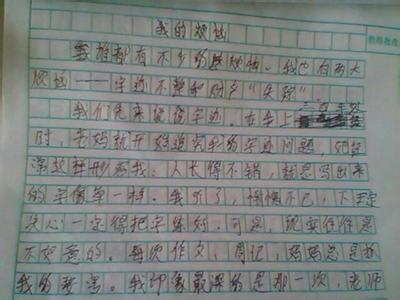 我的烦恼
谁都有不少的烦恼。我也有两大
烦恼——字迹不整和财字“失踪”
我们先来说说字迹。在早上
时，老妈就开始追究我的字迹问题，她
常这样形容我：人长得不错，就是写出来
的字像草一样。我听了，惭愧不已，下定
决心一定得把字练好。可是，现实往往是
不如意的。每次作文，周记，妈妈总是说
我的字丑。我印象最深的是那一次，老师